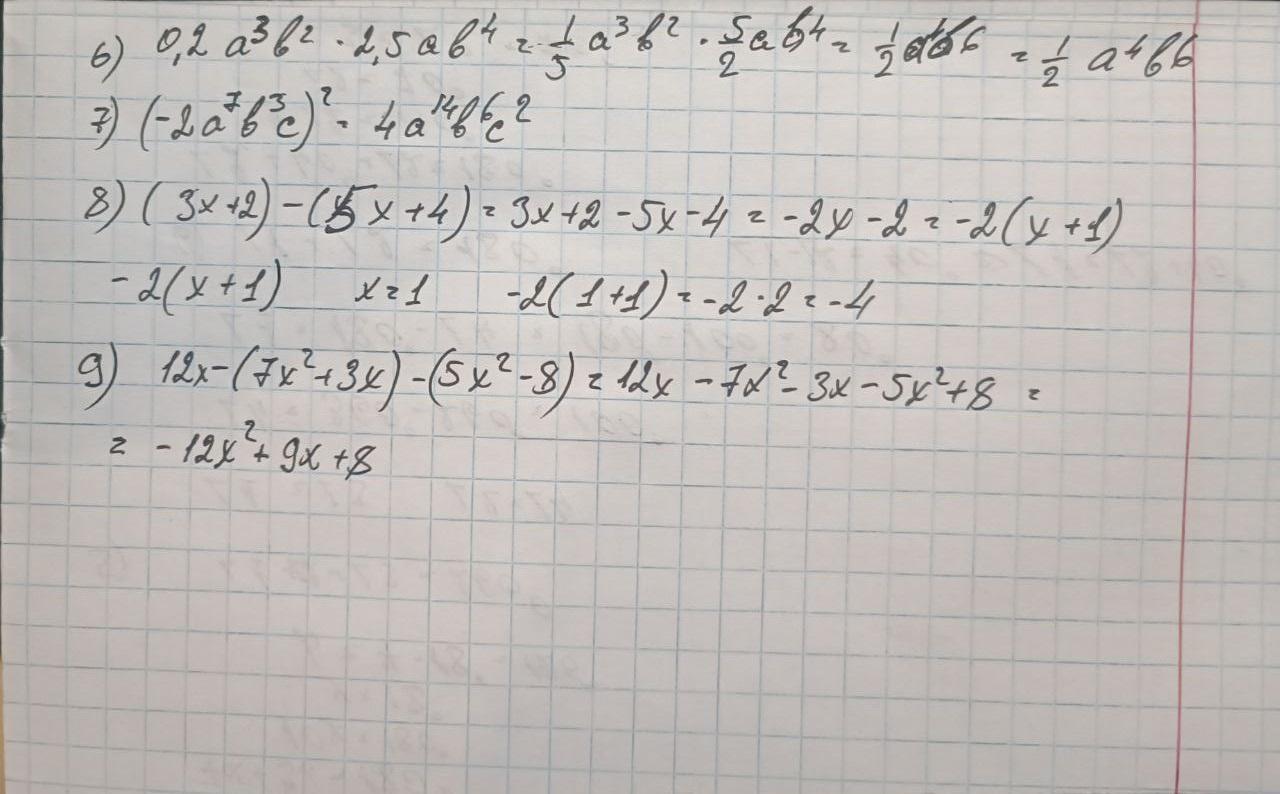 6) 0,2 a³b² · 2,5ab⁴ = 1/5 a³b² · 5/2 ab⁴ = 1/2 a⁴b⁶ = 1/2 a⁴b⁶
7) (-2a⁷b³c)² = 4a¹⁴b⁶c²
8) (3x+2) - (5x+4) = 3x+2 - 5x - 4 = -2x - 2 = -2(x+1)
-2(x+1) x=1 -2(1+1) = -2·2 = -4
9) 12x - (7x²+3x) - (5x²-8) = 12x - 7x² - 3x - 5x² + 8 =
= -12x² + 9x + 8